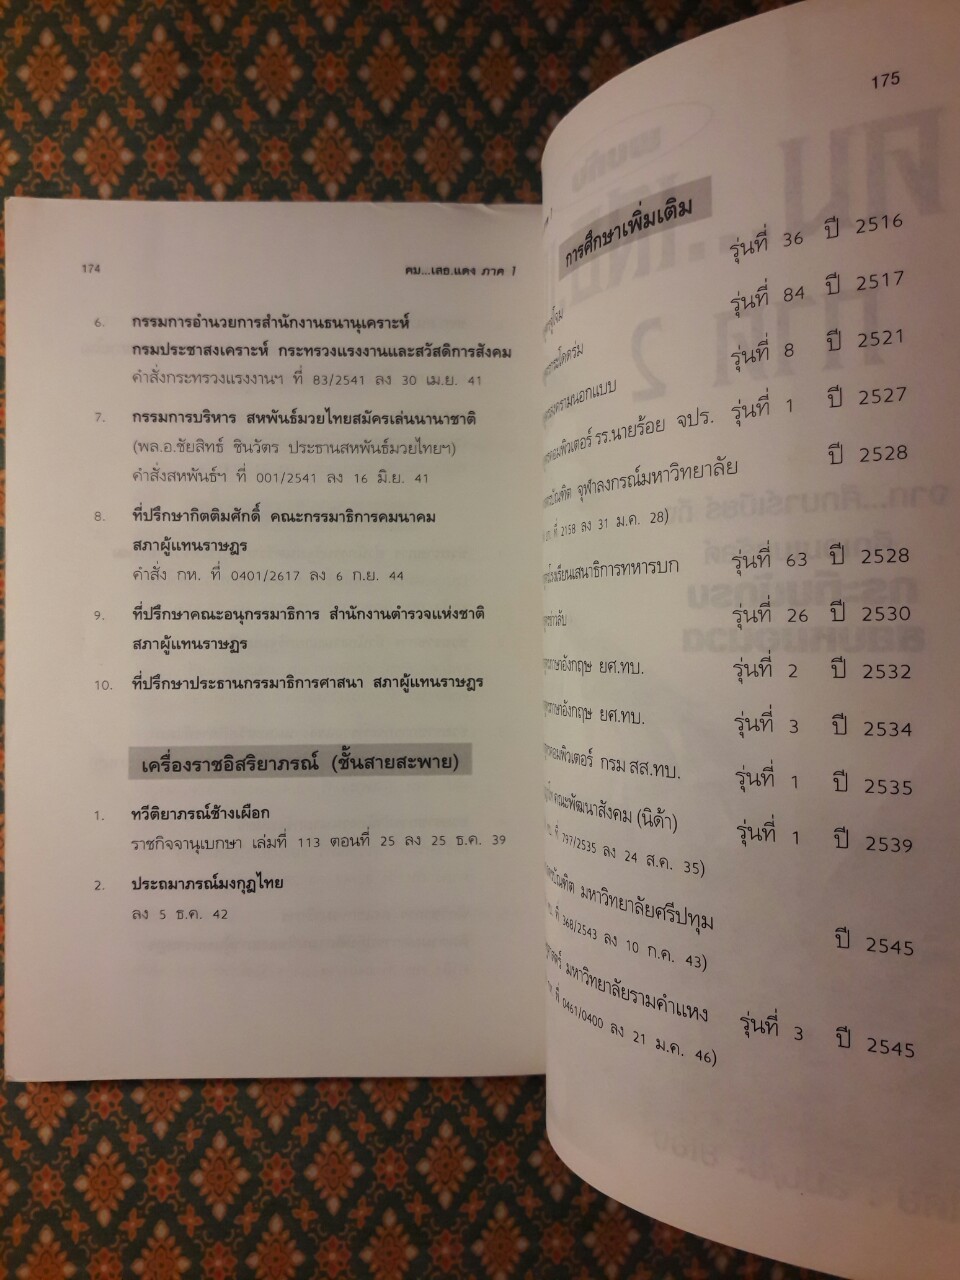 174
คม...เสธ.แดง ภาค 1
6. กรรมการอำนวยการสำนักงานธนานุเคราะห์
กรมประชาสงเคราะห์ กระทรวงแรงงานและสวัสดิการสังคม
คำสั่งกระทรวงแรงงานฯ ที่ 83/2541 ลง 30 เม.ย. 41
7. กรรมการบริหาร สหพันธ์มวยไทยสมัครเล่นนานาชาติ
(พล.อ.ชัยสิทธ์ ชินวัตร ประธานสหพันธ์มวยไทยฯ)
คำสั่งสหพันธ์ฯ ที่ 001/2541 ลง 16 มิ.ย. 41
8. ที่ปรึกษากิตติมศักดิ์ คณะกรรมาธิการคมนาคม
สภาผู้แทนราษฎร
คำสั่ง กห. ที่ 0401/2617 ลง 6 ก.ย. 44
9. ที่ปรึกษาคณะอนุกรรมาธิการ สำนักงานตำรวจแห่งชาติ
สภาผู้แทนราษฎร
10. ที่ปรึกษาประธานกรรมาธิการศาสนา สภาผู้แทนราษฎร
เครื่องราชอิสริยาภรณ์ (ชั้นสายสะพาย)
1. ทวีติยาภรณ์ช้างเผือก
ราชกิจจานุเบกษา เล่มที่ 113 ตอนที่ 25 ลง 25 ธ.ค. 39
2. ประถมาภรณ์มงกุฎไทย
ลง 5 ธ.ค. 42
175
การศึกษาเพิ่มเติม
รุ่นที่ 36 ปี 2516
รุ่นที่ 84 ปี 2517
รุ่นที่ 8 ปี 2521
คอมพิวเตอร์ รร.นายร้อย จปร. รุ่นที่ 1 ปี 2527
จุฬาลงกรณ์มหาวิทยาลัย ปี 2528
ที่ 2158 ลง 31 ม.ค. 28)
โรงเรียนเสนาธิการทหารบก รุ่นที่ 63 ปี 2528
รุ่นที่ 26 ปี 2530
ภาษาอังกฤษ ยศ.ทบ. รุ่นที่ 2 ปี 2532
ภาษาอังกฤษ ยศ.ทบ. รุ่นที่ 3 ปี 2534
คอมพิวเตอร์ กรม สส.ทบ. รุ่นที่ 1 ปี 2535
คณะพัฒนาสังคม (นิด้า) รุ่นที่ 1 ปี 2539
ที่ 797/2535 ลง 24 ส.ค. 35)
มหาวิทยาลัยศรีปทุม ปี 2545
ที่ 368/2543 ลง 10 ก.ค. 43)
มหาวิทยาลัยรามคำแหง รุ่นที่ 3 ปี 2545
ที่ 0461/0400 ลง 21 ม.ค. 46)